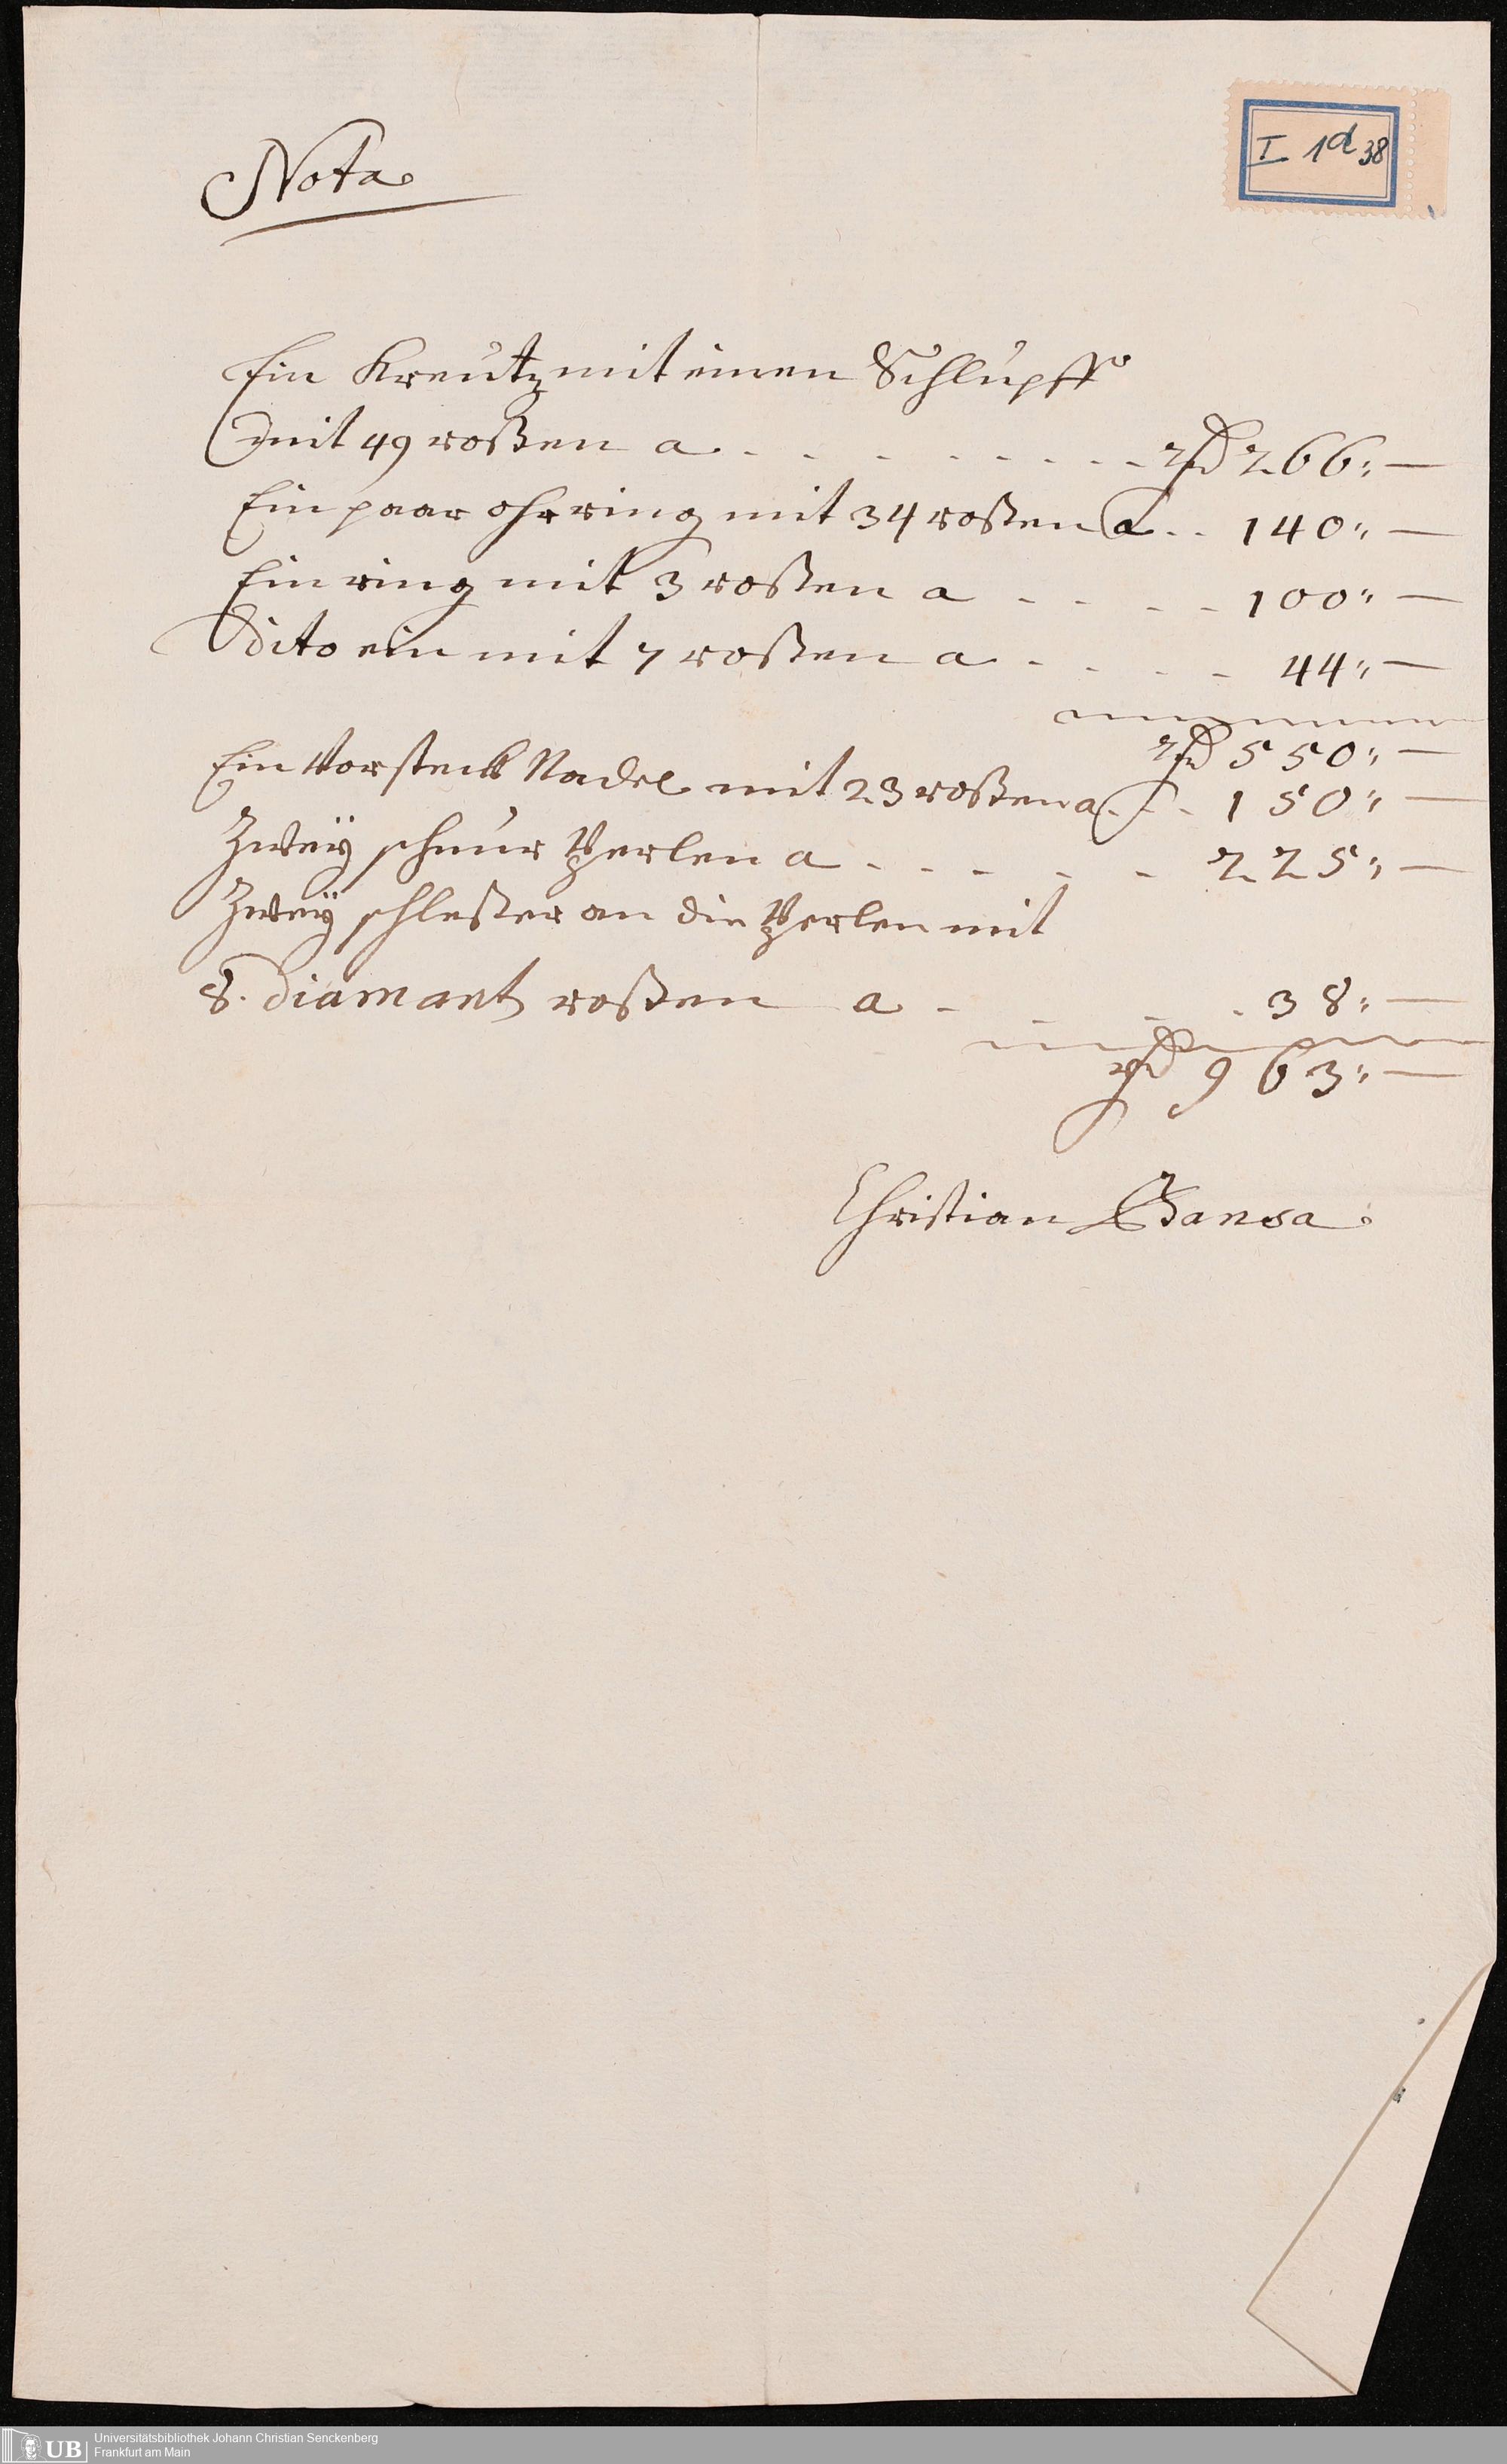 I 1d 38
Nota
Ein Kreutz mit einen Schlupff
mit 49 roßen a . . . . . . . . . rth 266:—
Ein paar ohrring mit 34 roßen a . . 140:—
Ein ring mit 3 roßen a . . . . 100:—
Dito ein mit 7 roßen a . . . . 44:—
rth 550:—
Ein Vorsteck Nadel mit 23 roßen a . . 150:—
Zweÿ schnur Perlen a . . . . . 225:—
Zweÿ schleßer an die Perlen mit
8. Diamant roßen a . . . . 38:—
rth 963:—
Christian Bansa
UB
Universitätsbibliothek Johann Christian Senckenberg
Frankfurt am Main